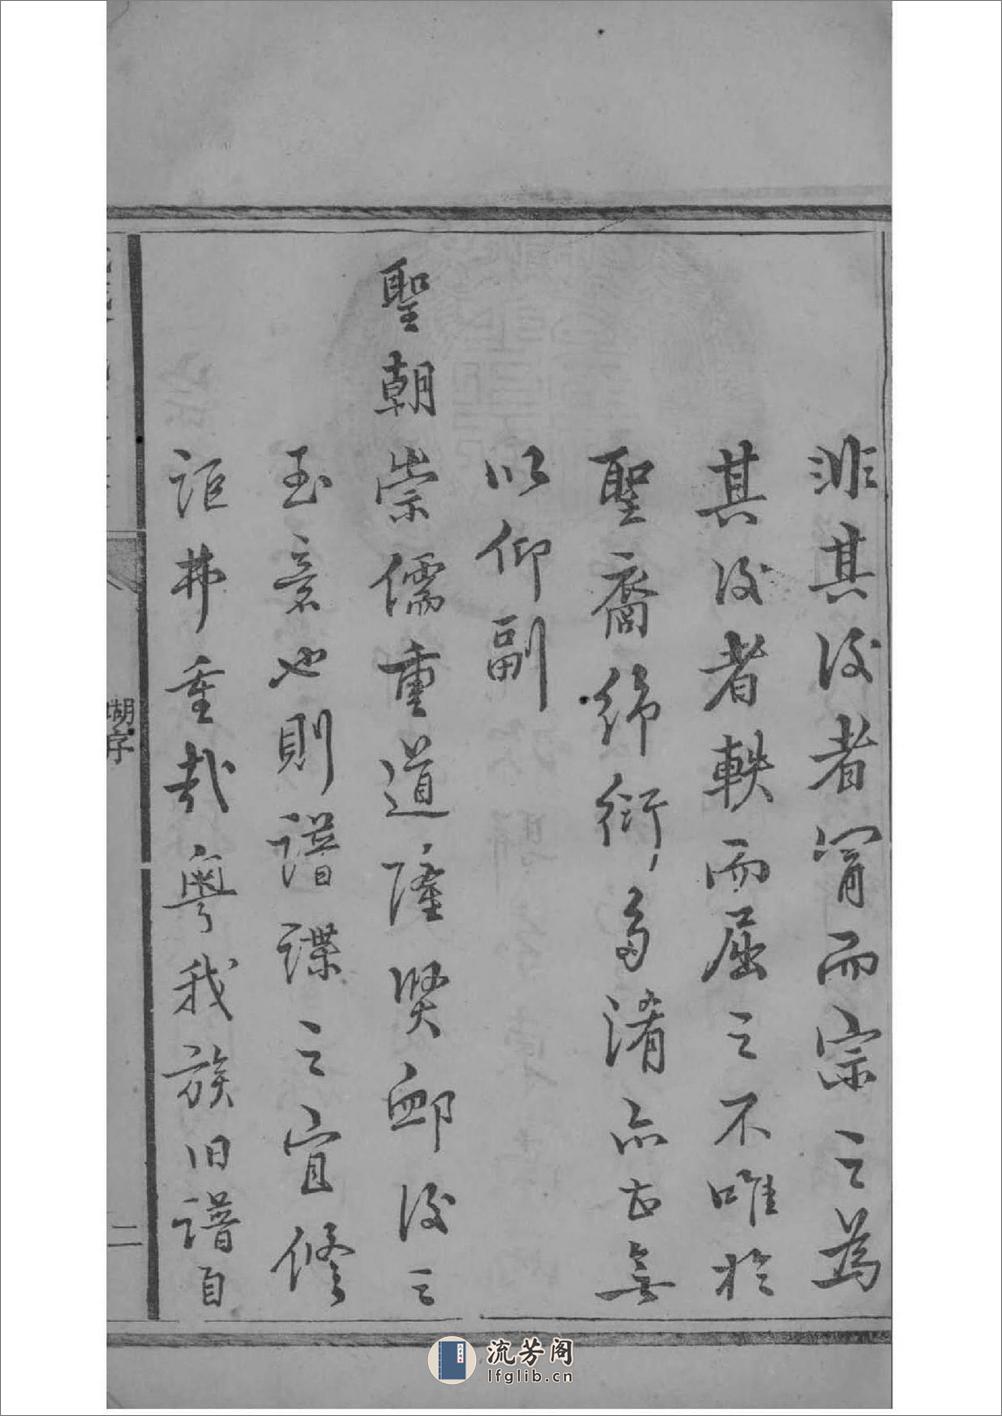 非其後者冒而宗之為
其後者軼而屈之不唯於
聖裔綿衍多淆亦甚無
以仰副
聖朝崇儒重道隆賢卹後之
至意也則譜諜之宜修
詎弗重哉粵我族旧譜自
瑚字
二
流芳阁
lfglib.cn